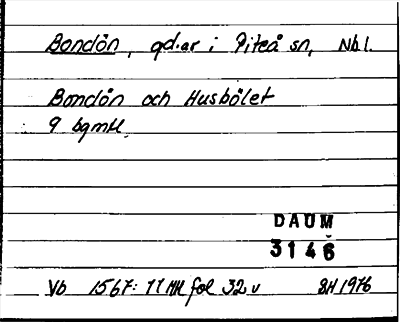 Bondön, gd.ar i Piteå sn, Nbl.
Bondön och Husbölet
9 bgmtl.
DAUM
3146
Vb 1567: 11 Mtl fol 32 v BH 1976